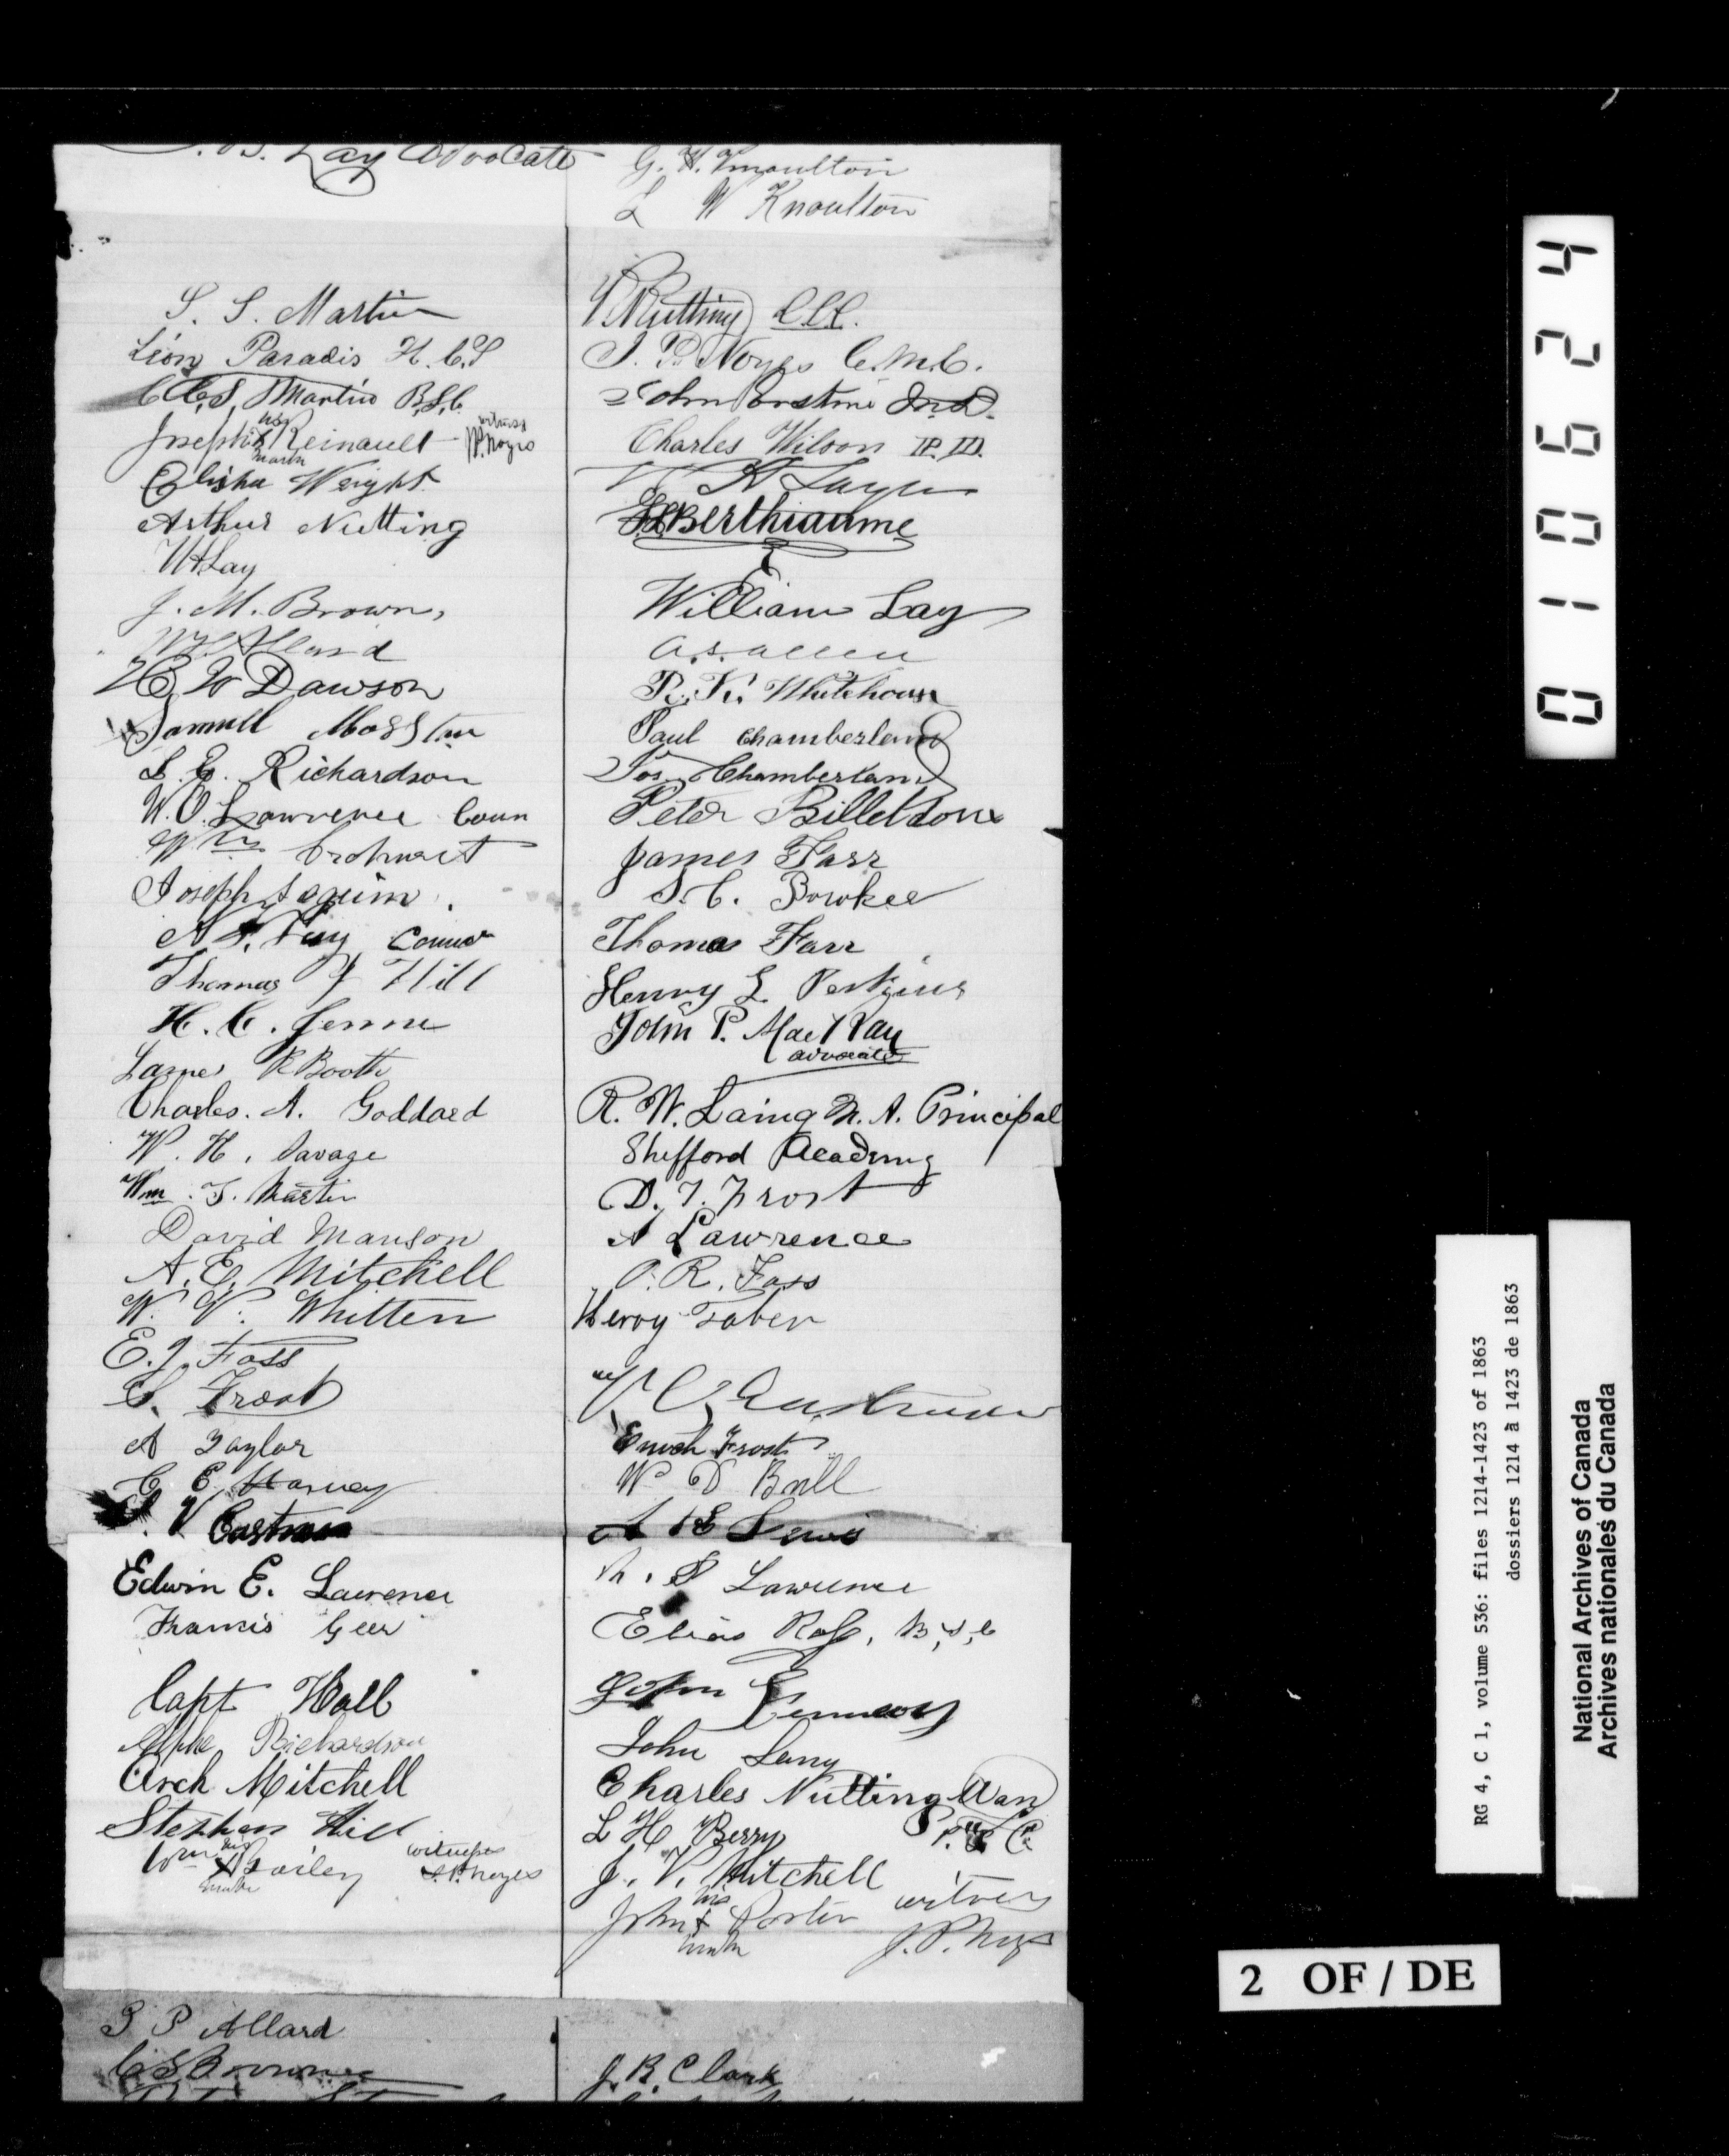 Lay Advocate
G. H. Knoulton
L W Knoulton
S. S. Martin
Léon Paradis H.C.S
C.S. Martin B.S.C.
Joseph his X mark Reinault witness J.P. Noyes
Elisha Wright
Arthur Nutting
W H Lay
J. M. Brown,
Allard
H. W Dawson
Samuell
L. E. Richardson
W. O. Lawrence Coun
Wm
Joseph
Thomas J Hill
H. C. Jenne
James R Booth
Charles. A. Goddard
W. H. Savage
Wm. T. Martin
David Manson
A. E. Mitchell
W. V. Whitten
E. J. Foss
S. Frost
A Taylor
C E Harvey
S. V Eastman
Edwin E. Lawrence
Francis Geer
Capt Hall
Richardson
Arch Mitchell
Stephen Hill
Wm his X mark Bailey witness J.P. Noyes
S P Allard
C S Brown
Nutting C.C.C.
J. P. Noyes C.M.C.
John Erskine
Charles Wilson
Berthiaume
William Lay
A. S. Allen
R. K. Whitehouse
Paul Chamberland
Jos. Chamberland
Peter Billeldoux
James Farr
S. C. Bowker
Thomas Farr
Henry L. Perkins
John P. MacKay
advocate
R. W. Laing M. A. Principal
Shefford Academy
D. T. Frost
A Lawrence
O. R. Foss
Leroy Taber
Enoch Frost
W D Ball
A E Lewis
S Lawrence
Elias B.S.C
John
John Lany
Charles Nutting Wan
L H Berry
J. V. Mitchell
John his X mark Porter witness
J. P. Noyes
J. R. Clark
0 1 0 6 2 4
RG 4, C 1, volume 536: files 1214-1423 of 1863
dossiers 1214 à 1423 de 1863
National Archives of Canada
Archives nationales du Canada
2 OF / DE